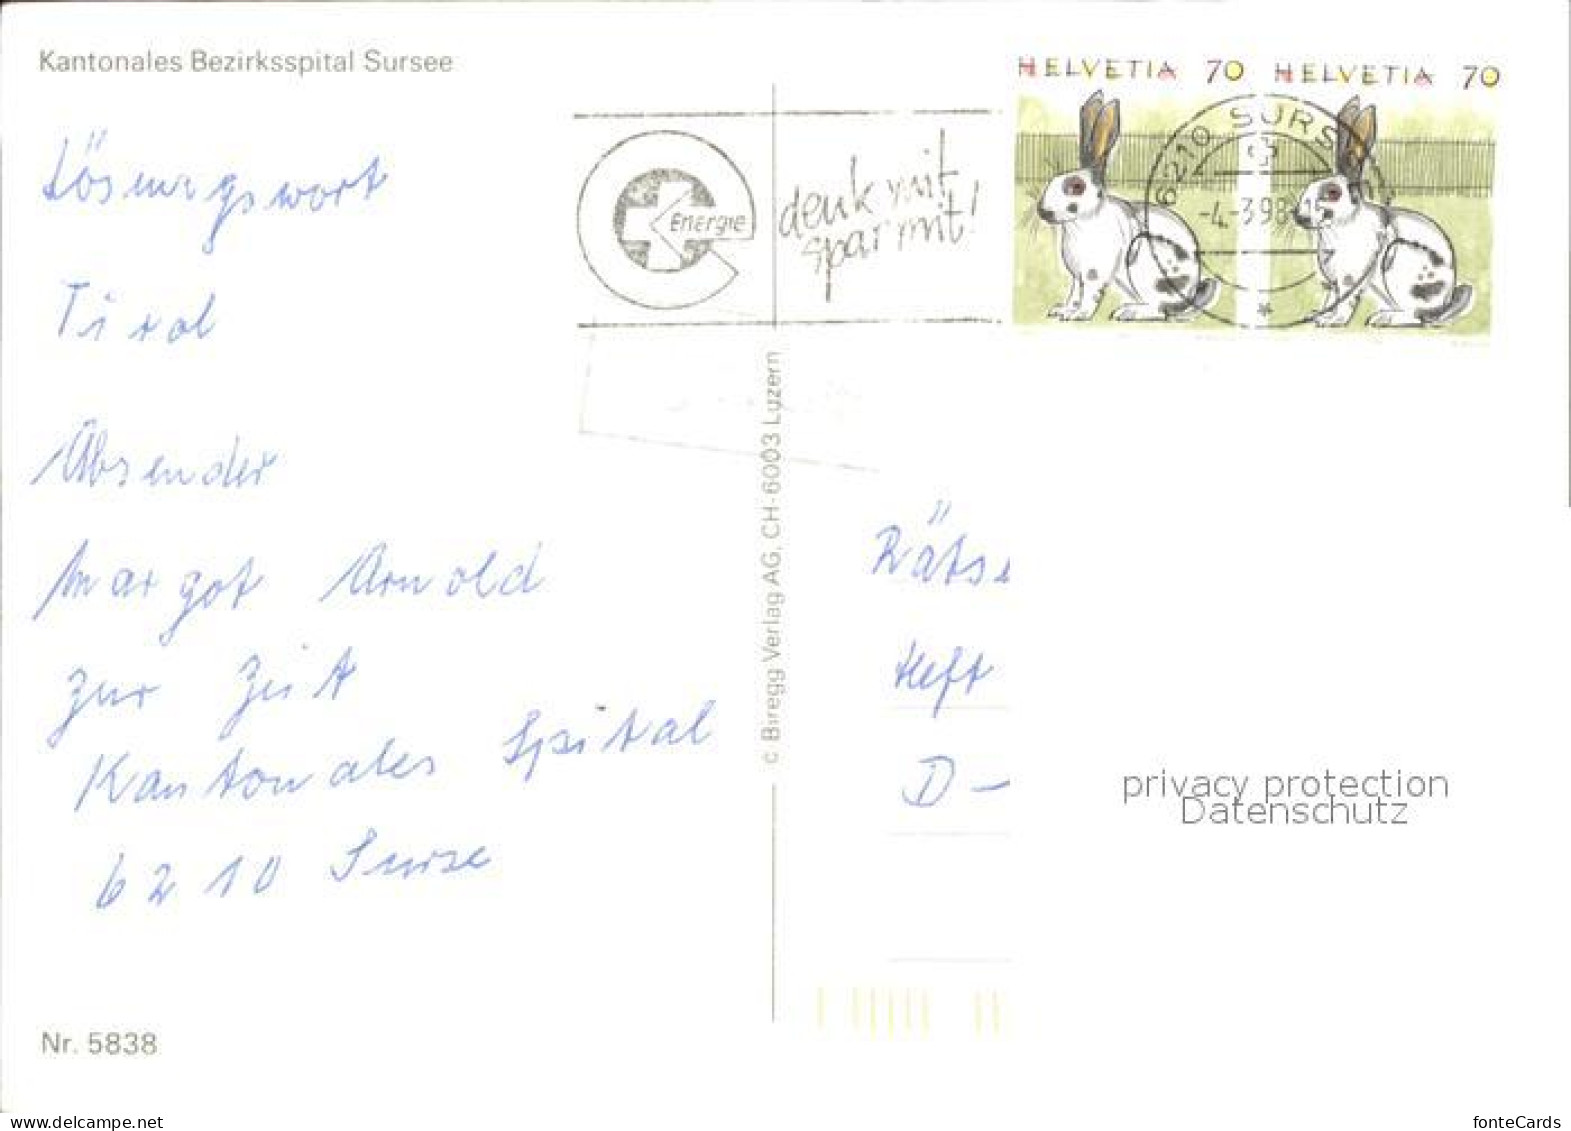 Kantonales Bezirksspital Sursee
HELVETIA 70 HELVETIA 70
6210 SURS
-4.-3.98
Energie
denk mit
spar mit!
Lösungswort
Tirol
Absender
Margot Arnold
zur Zeit
Kantonales Spital
6210 Surse
Nr. 5838
© Biregg Verlag AG, CH-6003 Luzern
Räts
Heft
D -
privacy protection
Datenschutz
www.delcampe.net
fonteCards